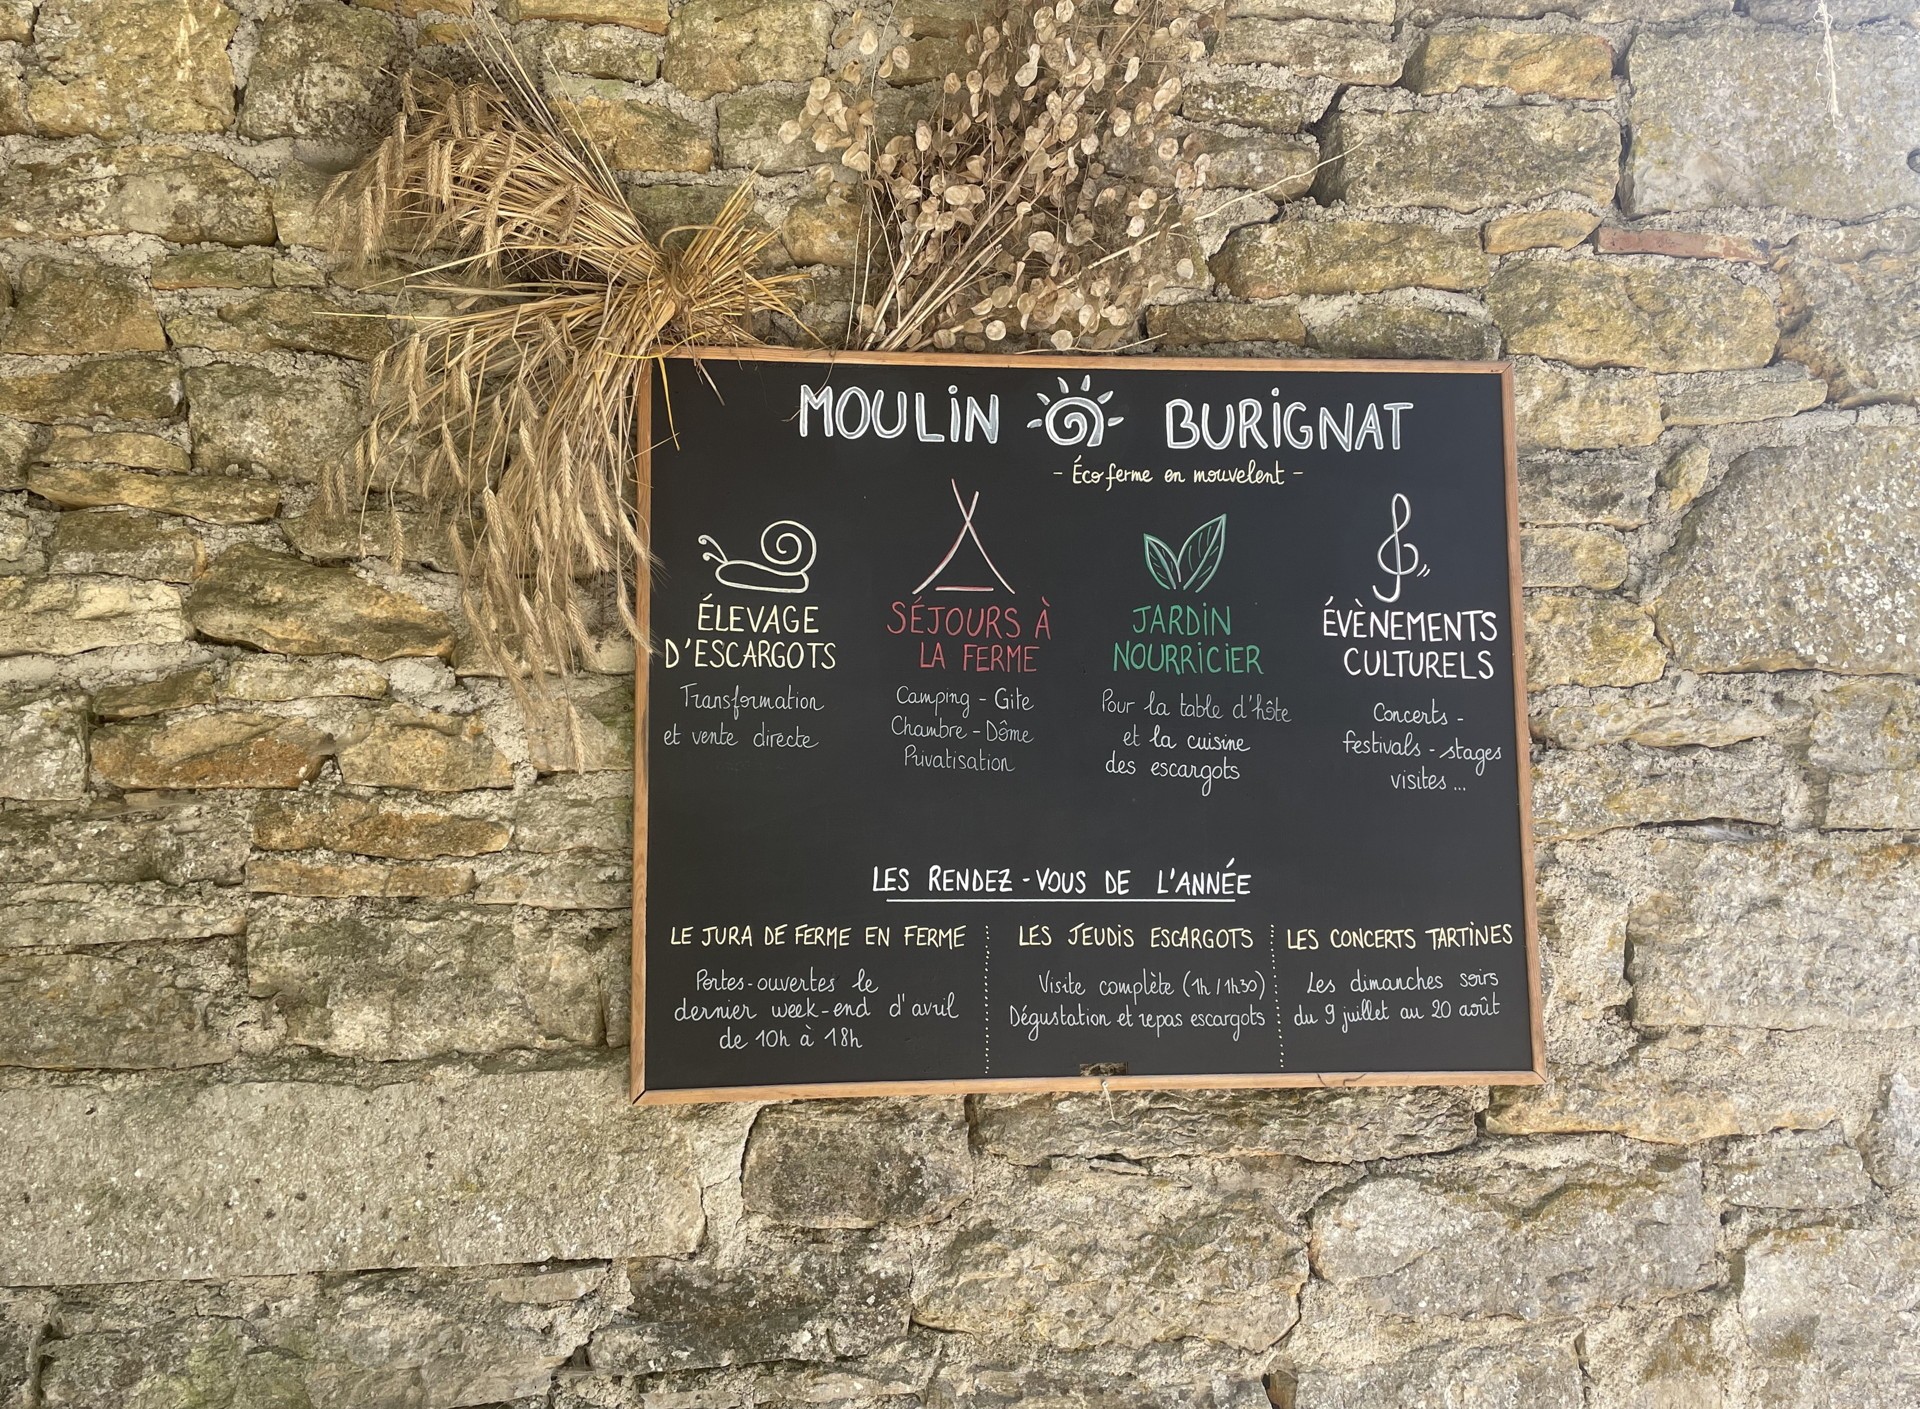 MOULIN BURIGNAT
- Éco ferme en mouvelent -
ÉLEVAGE
D'ESCARGOTS
Transformation
et vente directe
SÉJOURS À
LA FERME
Camping - Gite
Chambre - Dôme
Privatisation
JARDIN
NOURRICIER
Pour la table d'hôte
et la cuisine
des escargots
ÉVÈNEMENTS
CULTURELS
Concerts -
festivals - stages
visites ...
LES RENDEZ-VOUS DE L'ANNÉE
LE JURA DE FERME EN FERME
Portes-ouvertes le
dernier week-end d'avril
de 10h à 18h
LES JEUDIS ESCARGOTS
Visite complète (1h/1h30)
Dégustation et repas escargots
LES CONCERTS TARTINES
Les dimanches soirs
du 9 juillet au 20 août